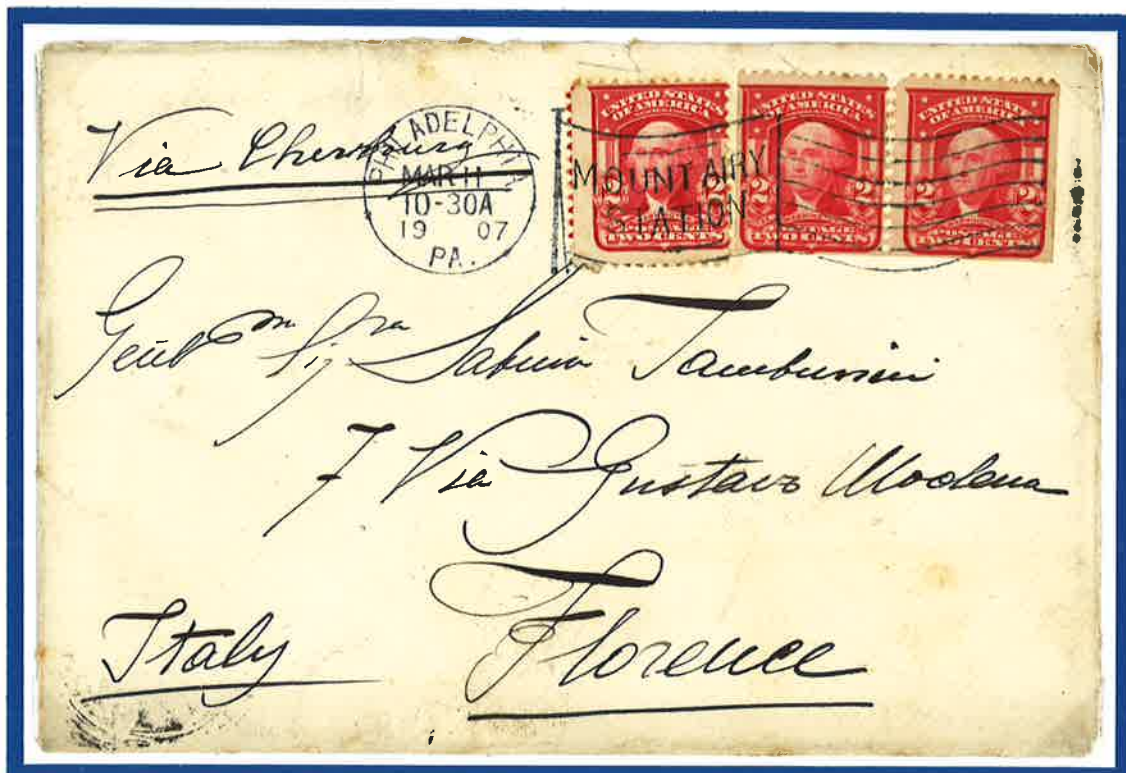 Via Cherbourg
PHILADELPHIA
MAR 11
10-30A
1907
PA.
MOUNT AIRY
STATION
UNITED STATES
OF AMERICA
2 2
POSTAGE
TWO CENTS
UNITED STATES
OF AMERICA
2 2
POSTAGE
TWO CENTS
UNITED STATES
OF AMERICA
2 2
POSTAGE
TWO CENTS
Gentma Sigra Tamburini
7 Via Gustavo Modena
Florence
Italy